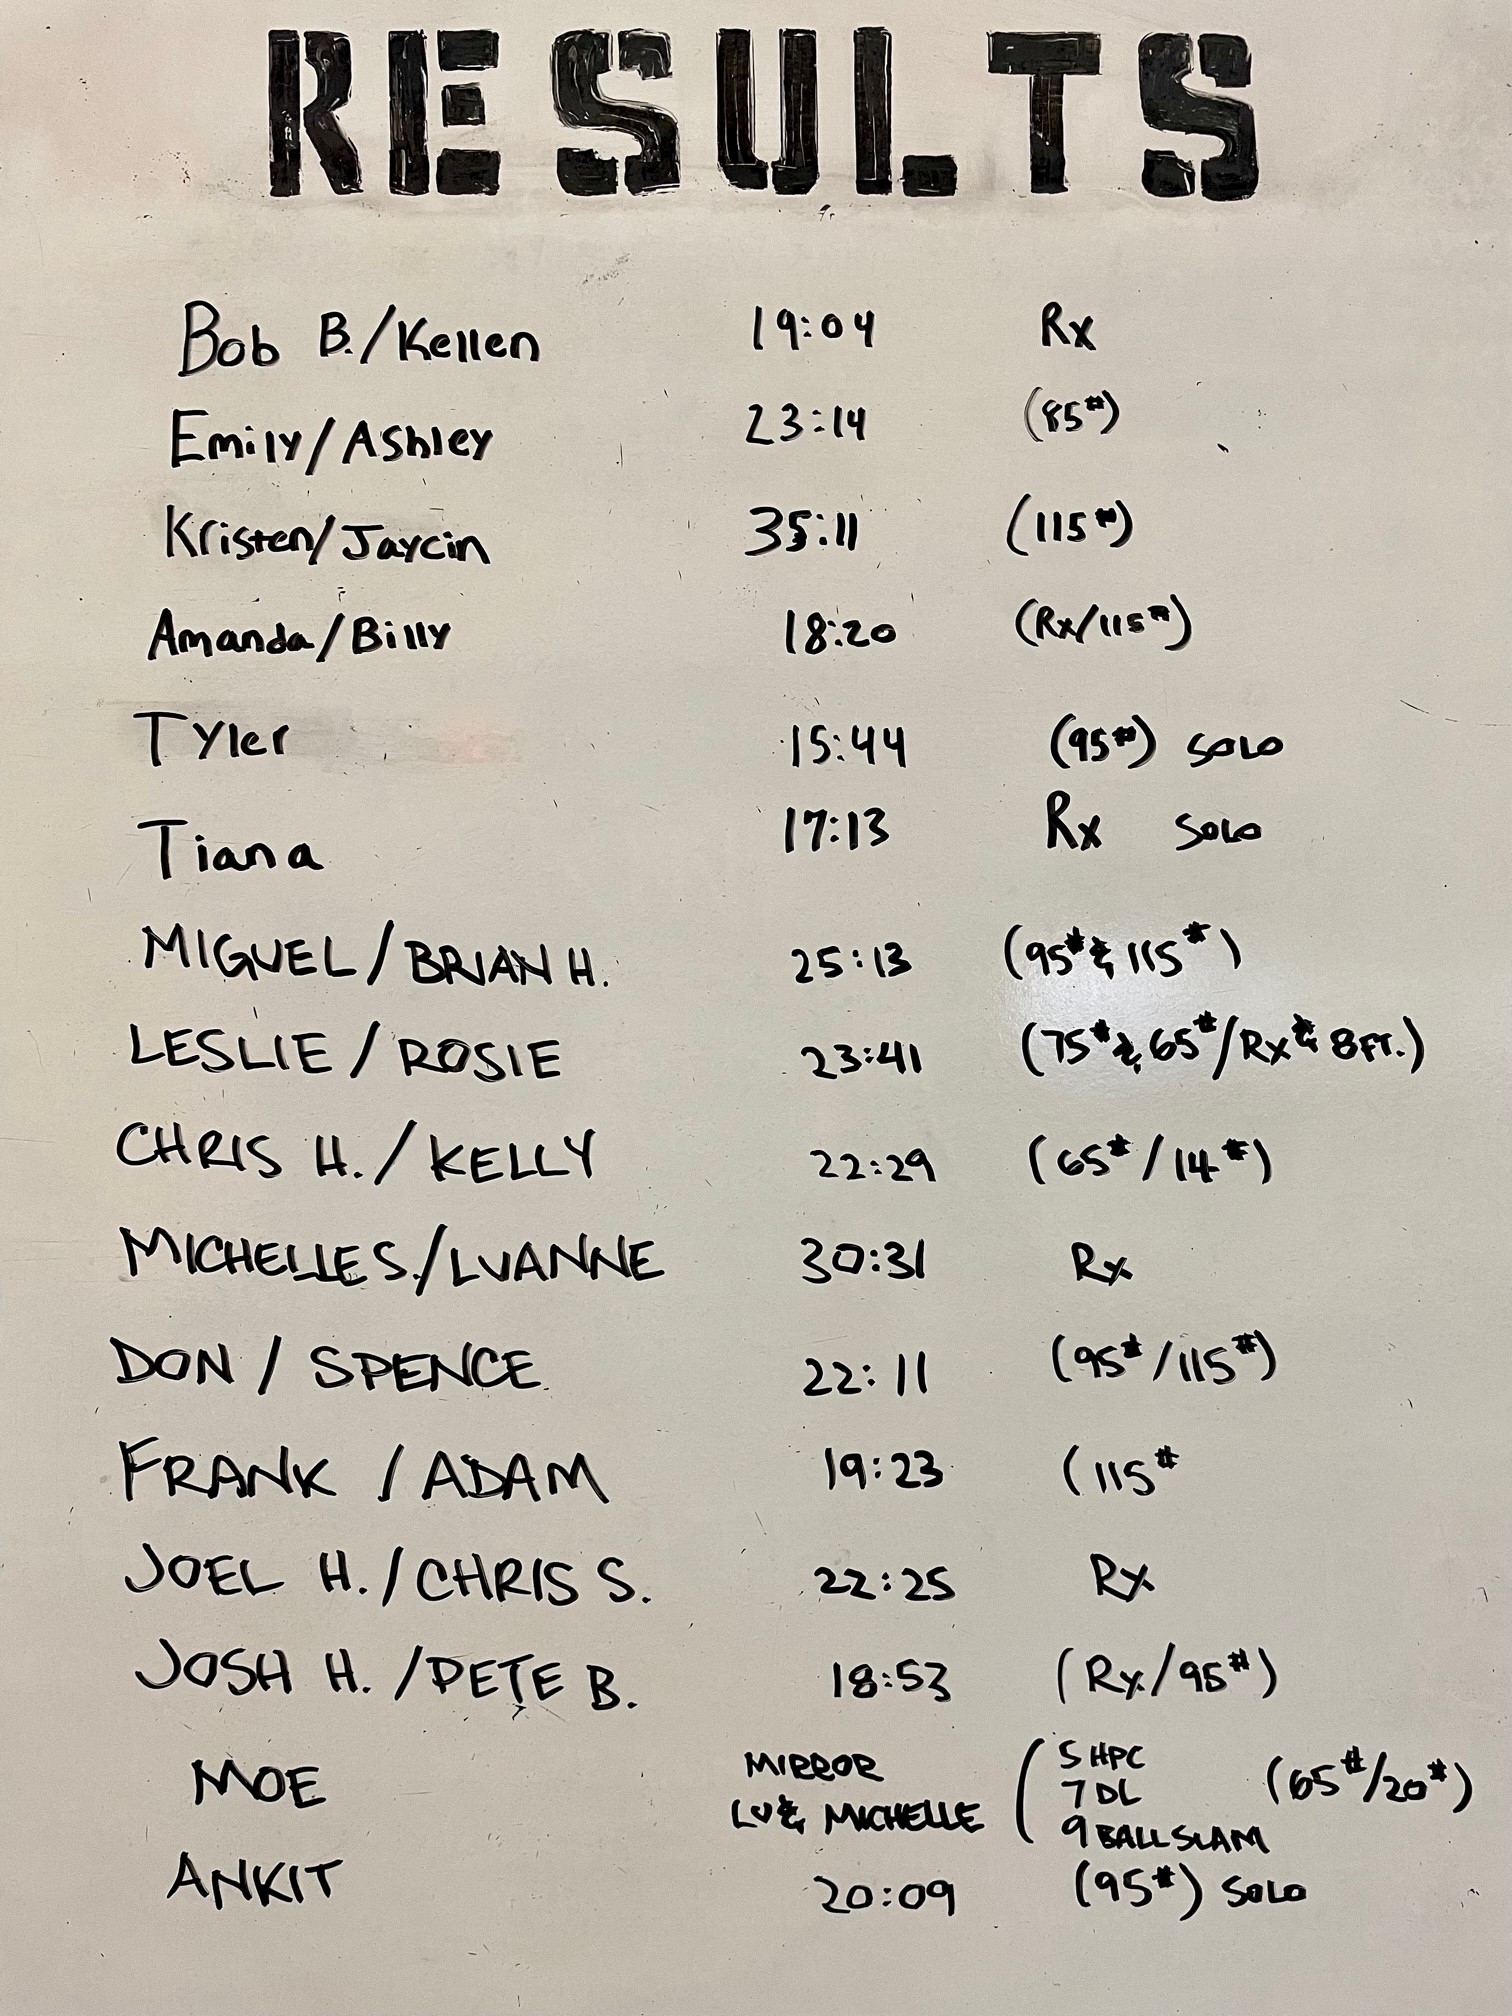 RESULTS
Bob B./Kellen 19:04 Rx
Emily/Ashley 23:14 (85#)
Kristen/Jaycin 35:11 (115#)
Amanda/Billy 18:20 (Rx/115#)
Tyler 15:44 (95#) SOLO
Tiana 17:13 Rx SOLO
MIGUEL/BRIAN H. 25:13 (95# & 115#)
LESLIE/ROSIE 23:41 (75# & 65#/Rx & 8FT.)
CHRIS H./KELLY 22:29 (65#/14#)
MICHELLE S./LUANNE 30:31 Rx
DON/SPENCE 22:11 (95#/115#)
FRANK/ADAM 19:23 (115#
JOEL H./CHRIS S. 22:25 Rx
JOSH H./PETE B. 18:53 (Rx/95#)
MOE MIRROR LU & MICHELLE (5 HPC 7 DL 9 BALL SLAM (65#/20#)
ANKIT 20:09 (95#) SOLO